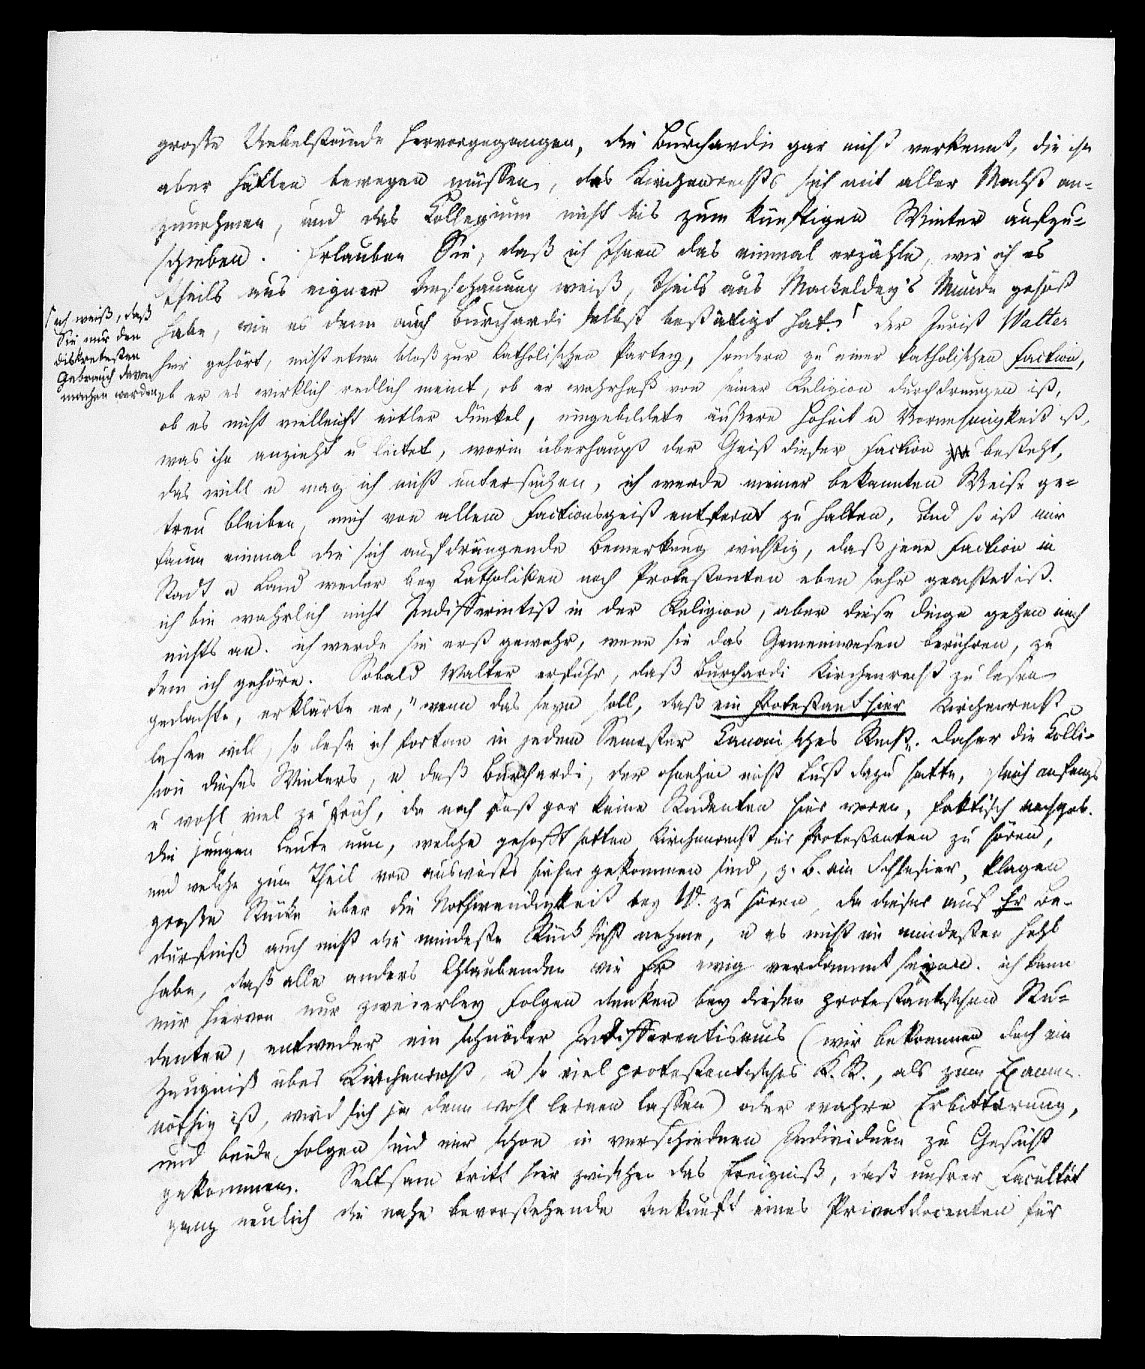 große Uebelstände hervorgegangen, die Burchardi gar nicht verkennt, die ihn
aber hätten bewegen müssen, des Kirchenrechts sich mit aller Macht an-
zunehmen, und das Collegium nicht bis zum künftigen Winter aufzu-
schieben. Erlauben Sie, daß ich Ihnen das einmal erzähle, wie ich es
theils aus eigner Anschauung weiß, theils aus Mackeldey's Munde gehört
habe, wie es denn auch Burchardi selbst bestätigt hat. der Jurist Walter
ich weiß, daß
Sie nur den
diskretesten
Gebrauch davon
machen werden
hier gehört, nicht etwa bloß zur katholischen Partey, sondern zu einer katholischen Faction,
ob er es wirklich redlich meint, ob er wahrhaft von seiner Religion durchdrungen ist,
ob es nicht vielleicht eitler Dünkel, eingebildete äußere Hoheit u Vornehmigkeit ist,
was ihn anzieht u leitet, worin überhaupt der Geist dieser Faction besteht,
das will u mag ich nicht untersuchen, ich werde meiner bekannten Weise ge-
treu bleiben, mich von allem Factionsgeist entfernt zu halten, und so ist mir
kaum einmal die sich aufdrängende Bemerkung wichtig, daß jene Faction in
Stadt u Land weder bey Katholiken noch Protestanten eben sehr geachtet ist.
ich bin wahrlich nicht Indifferentist in der Religion, aber diese Dinge gehen mich
nichts an. ich werde sie erst gewahr, wenn sie das Gemeinwesen berühren, zu
dem ich gehöre. Sobald Walter erfuhr, daß Burchardi Kirchenrecht zu lesen
gedachte, erklärte er, "wenn das seyn soll, daß ein Protestant hier Kirchenrecht
lesen will, so lese ich fortan in jedem Semester Canonisches Recht. Daher die Colli-
sion dieses Winters, u daß Burchardi, der ohnehin nicht Lust dazu hatte, gleich anfangs
u wohl viel zu früh, da noch fast gar keine Studenten hier waren, faktisch nachgab.
die jungen Leute nun, welche gehofft hatten Kirchenrecht für Protestanten zu hören,
und welche zum Theil von auswärts hieher gekommen sind, z. B. ein Schlesier, klagen
große Stücke über die Nothwendigkeit bey W. zu hören, da dieser auf Ihr Be-
dürfniß auch nicht die mindeste Rücksicht nehme, u es nicht im mindesten Hehl
habe, daß alle anders Glaubenden wie Er ewig verdammt seyen. ich kann
mir hiervon nur zweierley Folgen denken bey diesen protestantischen Stu-
denten, entweder ein schnöder Indifferentismus (wir bekommen doch ein
Zeugniß über Kirchenrecht, u so viel protestantisches K. R., als zum Examen
nöthig ist, wird sich ja denn wohl lernen lassen) oder wahre Erbitterung,
und beide Folgen sind mir schon in verschiednen Individuen zu Gesicht
gekommen. Seltsam tritt hier zwischen das Ereigniß, daß unsrer Facultät
ganz neulich die nahe bevorstehende Ankunft eines Privatdocenten für